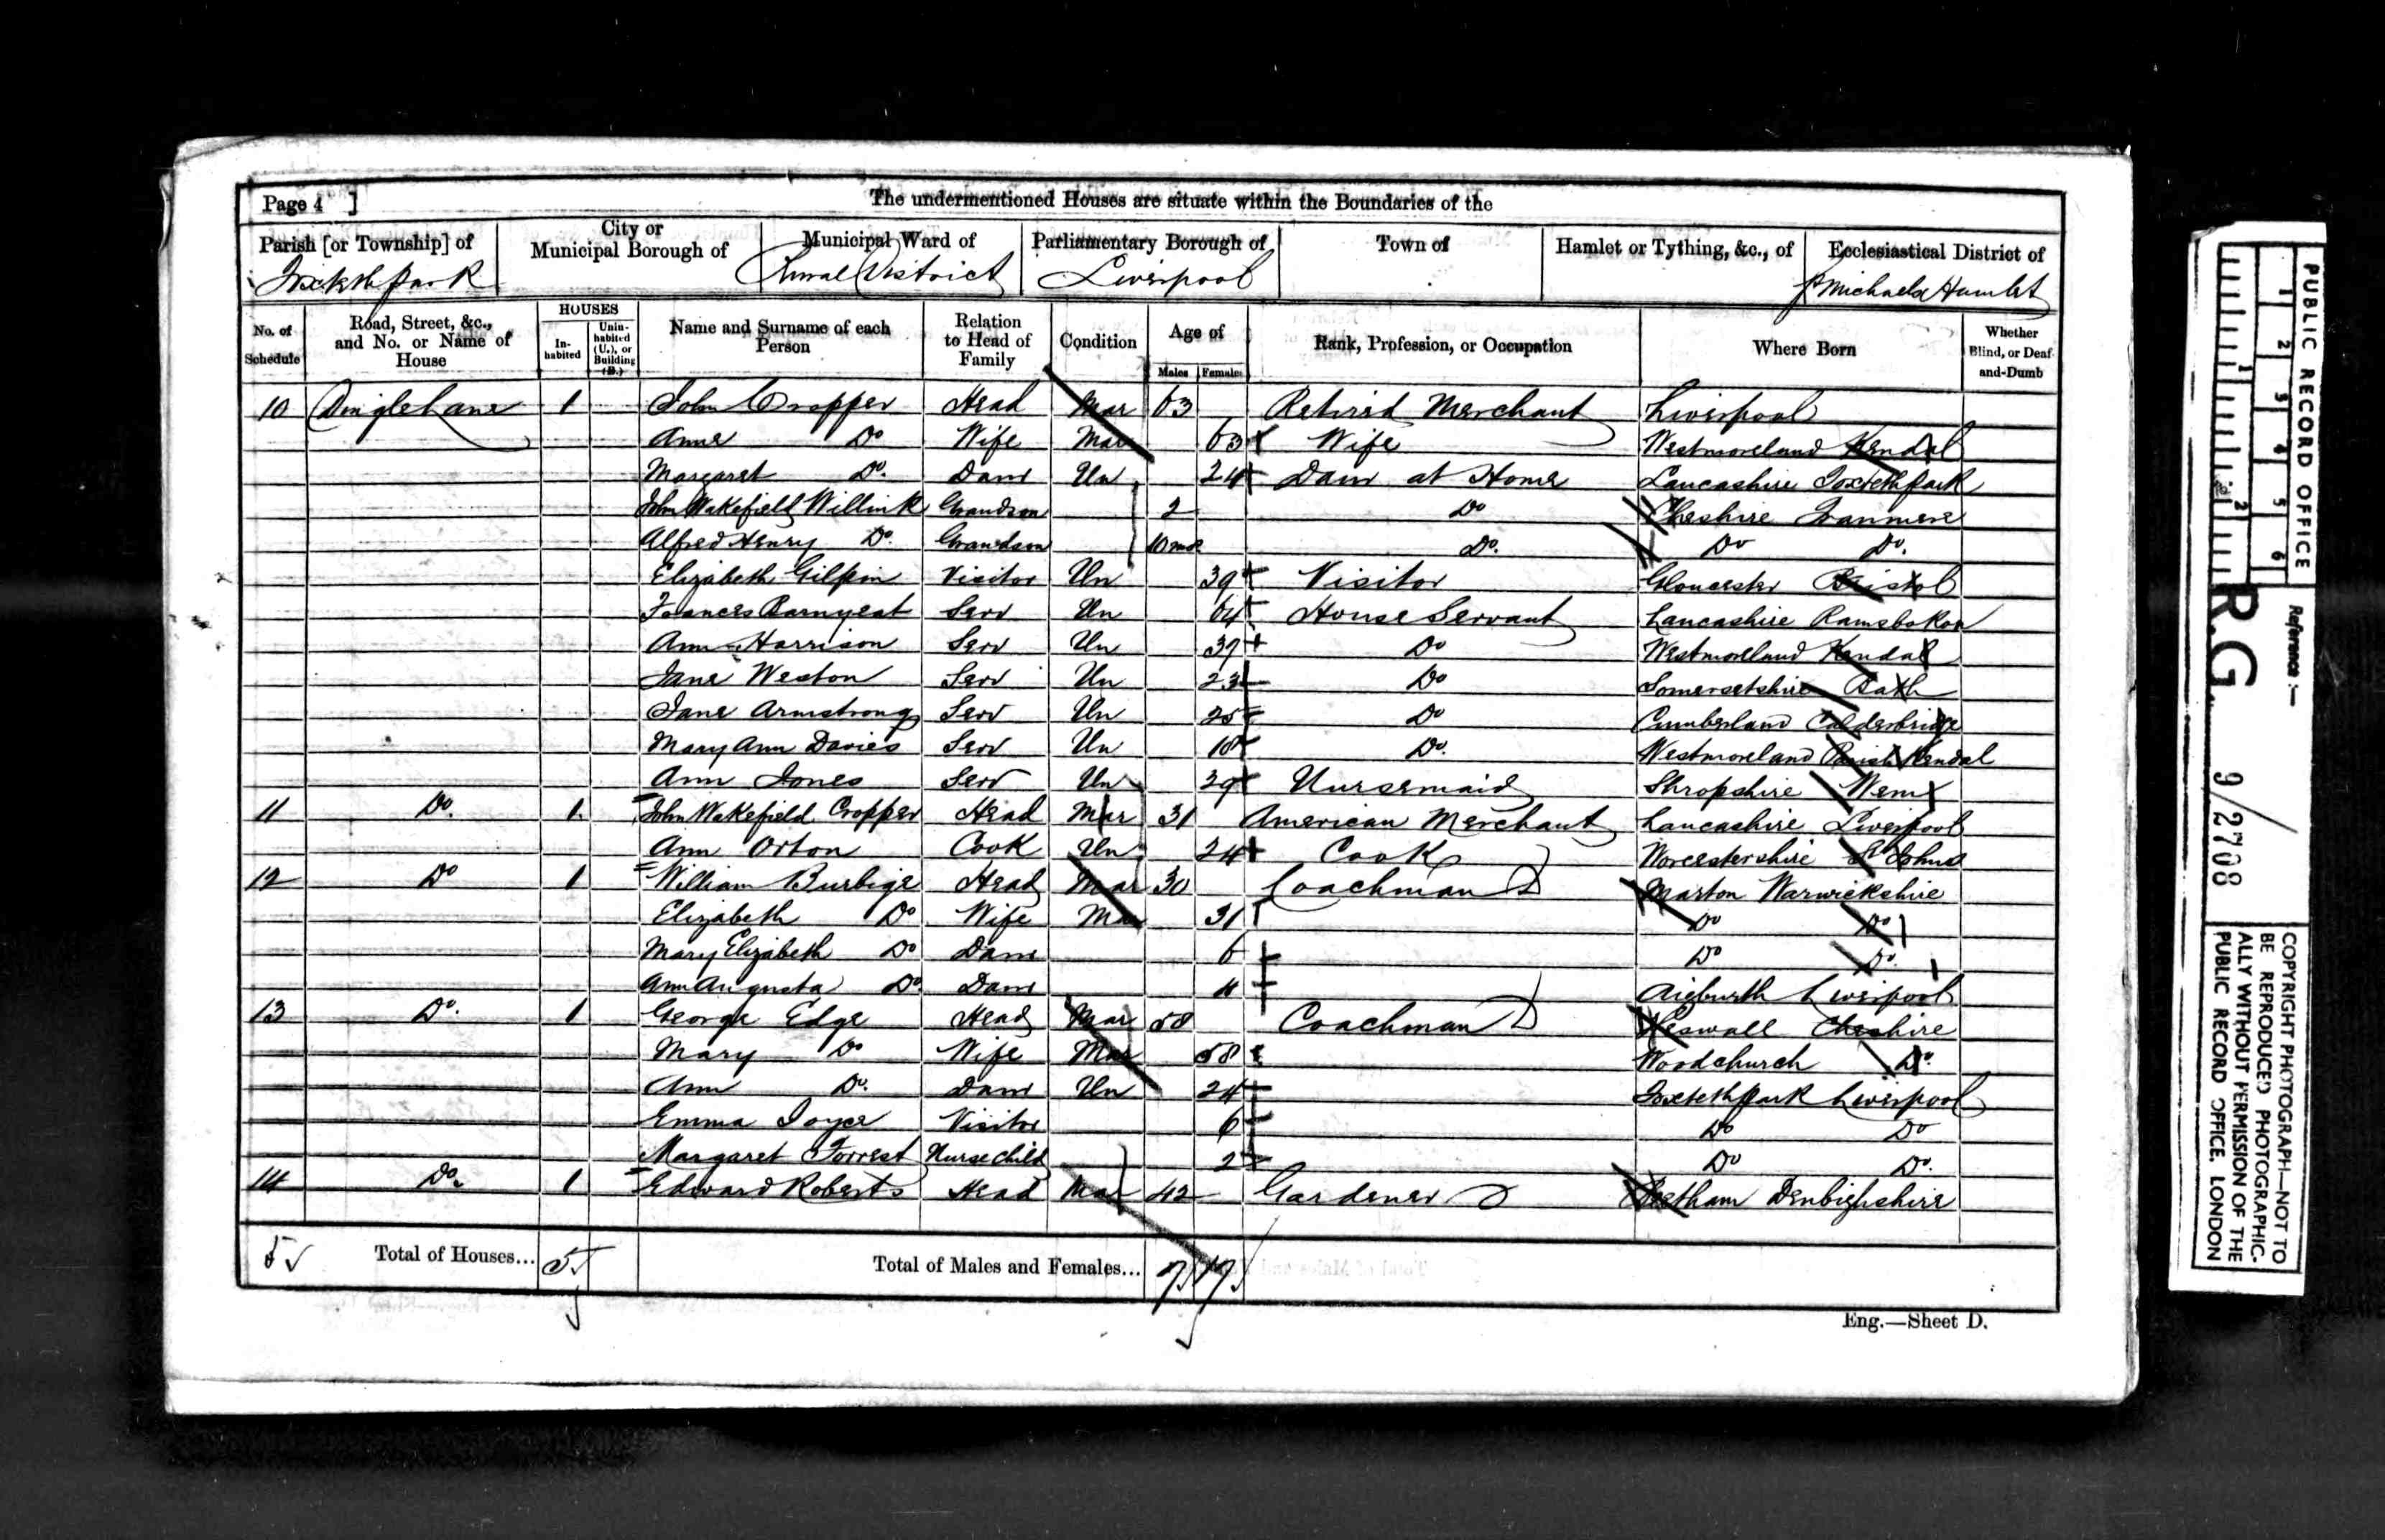 Page 4 ]
The undermentioned Houses are situate within the Boundaries of the
Parish [or Township] of
Toxteth Park
City or Municipal Borough of
Municipal Ward of
Rural District
Parliamentary Borough of
Liverpool
Town of
Hamlet or Tything, &c., of
Ecclesiastical District of
St Michaels Hamlet
No. of Schedule
Road, Street, &c., and No. or Name of House
HOUSES
In-habited
Unin-habited (U.), or Building (B.)
Name and Surname of each Person
Relation to Head of Family
Condition
Age of
Males Females
Rank, Profession, or Occupation
Where Born
Whether Blind, or Deaf-and-Dumb
10 Dingle Lane 1 John Cropper Head Mar 63 Retired Merchant Liverpool
Anne Do Wife Mar 63 Wife Westmoreland Kendal
Margaret Do. Daur Un 24 Daur at Home Lancashire Toxteth Park
John Wakefield Willink Grandson 2 Do Cheshire Tranmere
Alfred Henry Do. Grandson 10 mos Do. Do Do.
Elizabeth Gilpin Visitor Un 39 Visitor Gloucester Bristol
Frances Barnyeat Serv Un 64 House Servant Lancashire
Ann Harrison Serv Un 37 Do Westmoreland Kendal
Jane Weston Serv Un 23 Do Somersetshire Bath
Jane Armstrong Serv Un 25 Do Cumberland Calderbridge
Mary Ann Davies Serv Un 18 Do. Westmoreland Kendal
Ann Jones Serv Un 29 Nursemaid Shropshire Wem
11 Do. 1. John Wakefield Cropper Head Mar 31 American Merchant Lancashire Liverpool
Ann Orton Cook Un 24 Cook Worcestershire St Johns
12 Do 1 William Burbige Head Mar 30 Coachman D Marton Warwickshire
Elizabeth Do Wife Mar 31 Do Do
Mary Elizabeth Do Daur 6 Do Do.
Ann Augusta Do. Daur 4 Aigburth Liverpool
13 Do. 1 George Edge Head Mar 58 Coachman D Heswall Cheshire
Mary Do Wife Mar 58 Woodchurch Do.
Ann Do. Daur Un 24 Toxteth Park Liverpool
Emma Joyce Visitor 6 Do Do
Margaret Forrest Nurse child 2 Do Do.
14 Do. 1 Edward Roberts Head Mar 42 Gardener D Denbighshire
5 Total of Houses... 5 Total of Males and Females... 7 17
Eng.—Sheet D.
PUBLIC RECORD OFFICE
1 2 3 4 5 6
1 2
Reference :—
R.G. 9/2708
COPYRIGHT PHOTOGRAPH—NOT TO
BE REPRODUCED PHOTOGRAPHIC-
ALLY WITHOUT PERMISSION OF THE
PUBLIC RECORD OFFICE, LONDON